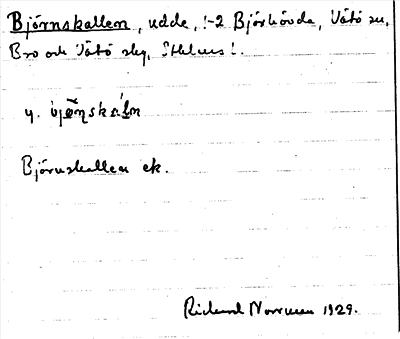 Björnskallen, udde, 1-2 Björkövda, Vätö sn,
Bro och Vätö skg, Sthlms l.
y. bjö̀ŋskáln
Björnskallen ek.
Rickard Norrman 1929.